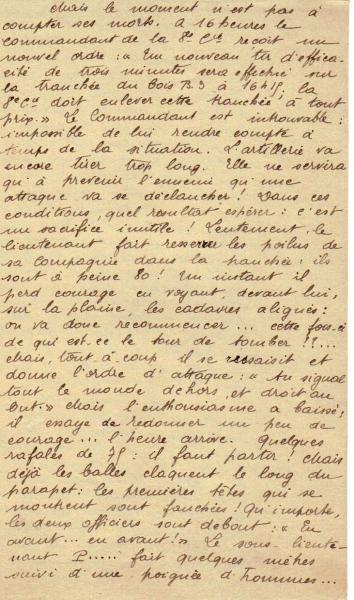 Mais le moment n'est pas à
compter ses morts. A 16 heures le
commandant de la 8e Cie reçoit un
nouvel ordre : « Un nouveau tir d'effica-
cité de trois minutes sera effectué sur
la tranchée du Bois B.3 à 16 h 15, la
8e Cie doit enlever cette tranchée à tout
prix. » Le Commandant est introuvable :
impossible de lui rendre compte à
temps de la situation. L'artillerie va
encore tirer trop long. Elle ne servira
qu'à prévenir l'ennemi qu'une
attaque va se déclancher ! Dans ces
conditions, quel résultat espérer : c'est
un sacrifice inutile ! Lentement, le
lieutenant fait resserrer les poilus de
sa compagnie dans la tranchée : ils
sont à peine 80 ! Un instant il
perd courage en voyant, devant lui,
sur la plaine, les cadavres alignés :
on va donc recommencer... cette fois-ci
de qui est-ce le tour de tomber !?...
Mais, tout à coup il se ressaisit et
donne l'ordre d'attaque : « Au signal
tout le monde dehors, et droit au
but. » Mais l'enthousiasme a baissé,
il essaye de redonner un peu de
courage... l'heure arrive. Quelques
rafales de 75 : il faut partir ! Mais
déjà les balles claquent le long du
parapet : les premières têtes qui se
montrent sont fauchées ! Qu'importe,
les deux officiers sont debout : « En
avant... en avant ! » Le sous-lieute-
nant P..... fait quelques mètres
suivi d'une poignée d'hommes...